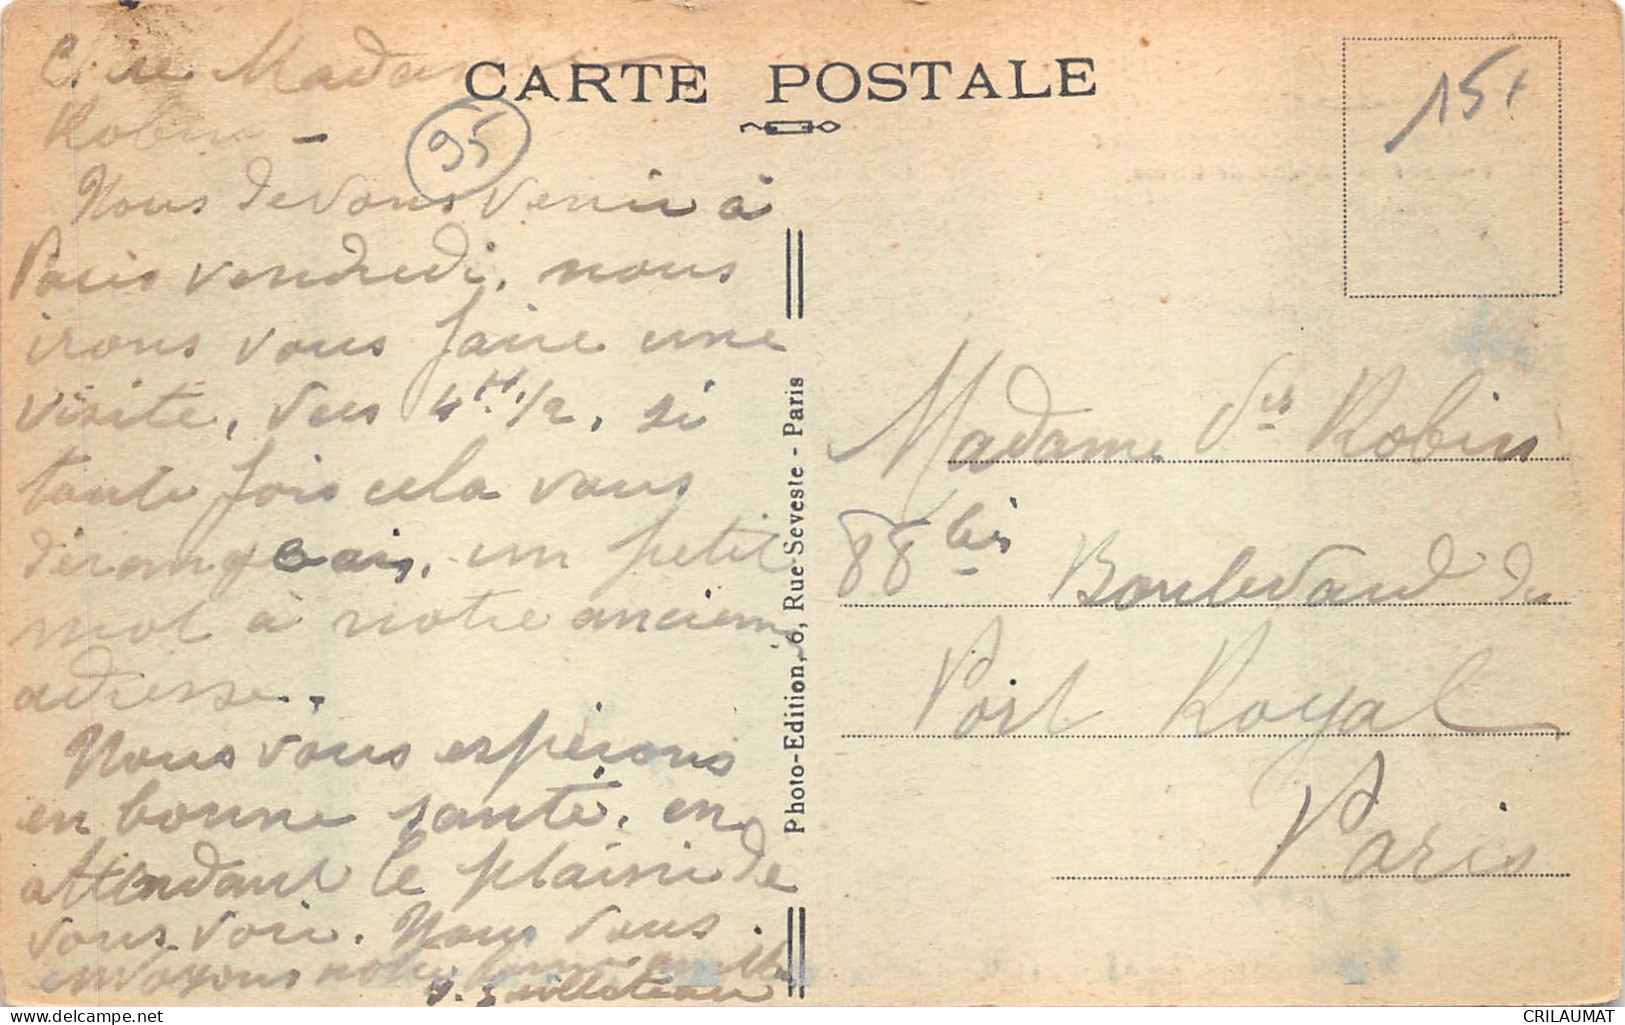 CARTE POSTALE
15
95
Chère Madame
Robin -
Nous devons venir à
Paris vendredi, nous
irons vous faire une
visite, vers 4 H. 1/2, si
toute fois cela vous
dérangeais, un petit
mot à notre ancienne
adresse.
Nous vous espérons
en bonne santé, en
attendant le plaisir de
vous voir. Nous vous
envoyons notre
Photo-Edition, 6, Rue Seveste - Paris
Madame Vve Robin
88 bis Boulevard du
Port Royal
Paris
delcampe.net
CRILAUMAT